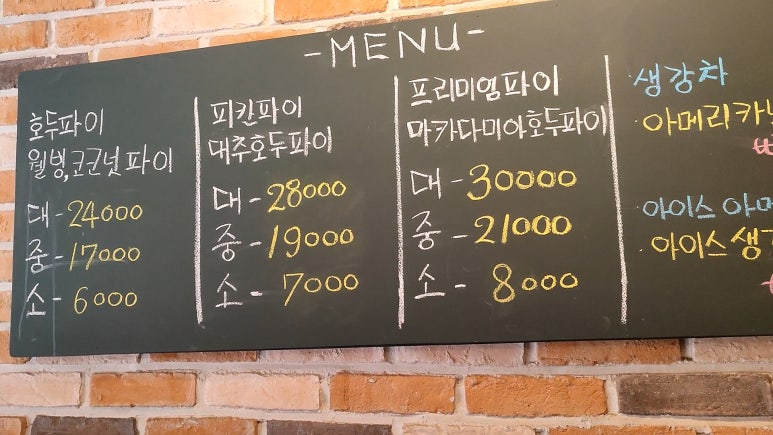 -MENU-
호두파이
월빙,코코넛파이
대-24000
중-17000
소-6000
피칸파이
대추호두파이
대-28000
중-19000
소-7000
프리미엄파이
마카다미아호두파이
대-30000
중-21000
소-8000
생강차
아메리카
아이스 아메
아이스생